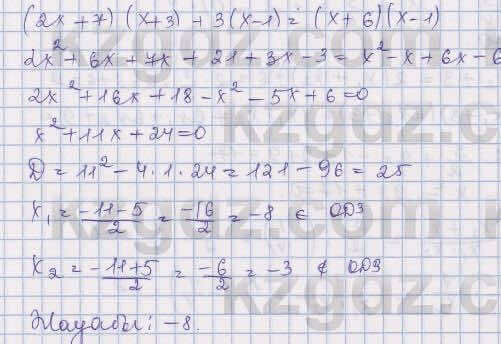 (2x + 7)(x+3) + 3(x-1) = (x+6)(x-1)
2x² + 6x + 7x + 21 + 3x - 3 = x² - x + 6x - 6
2x² + 16x + 18 - x² - 5x + 6 = 0
x² + 11x + 24 = 0
D = 11² - 4·1·24 = 121 - 96 = 25
x₁ = (-11-5)/2 = (-16)/2 = -8 ∈ ОДЗ
x₂ = (-11+5)/2 = (-6)/2 = -3 ∉ ОДЗ
Жауабы: -8.
kzgdz.com